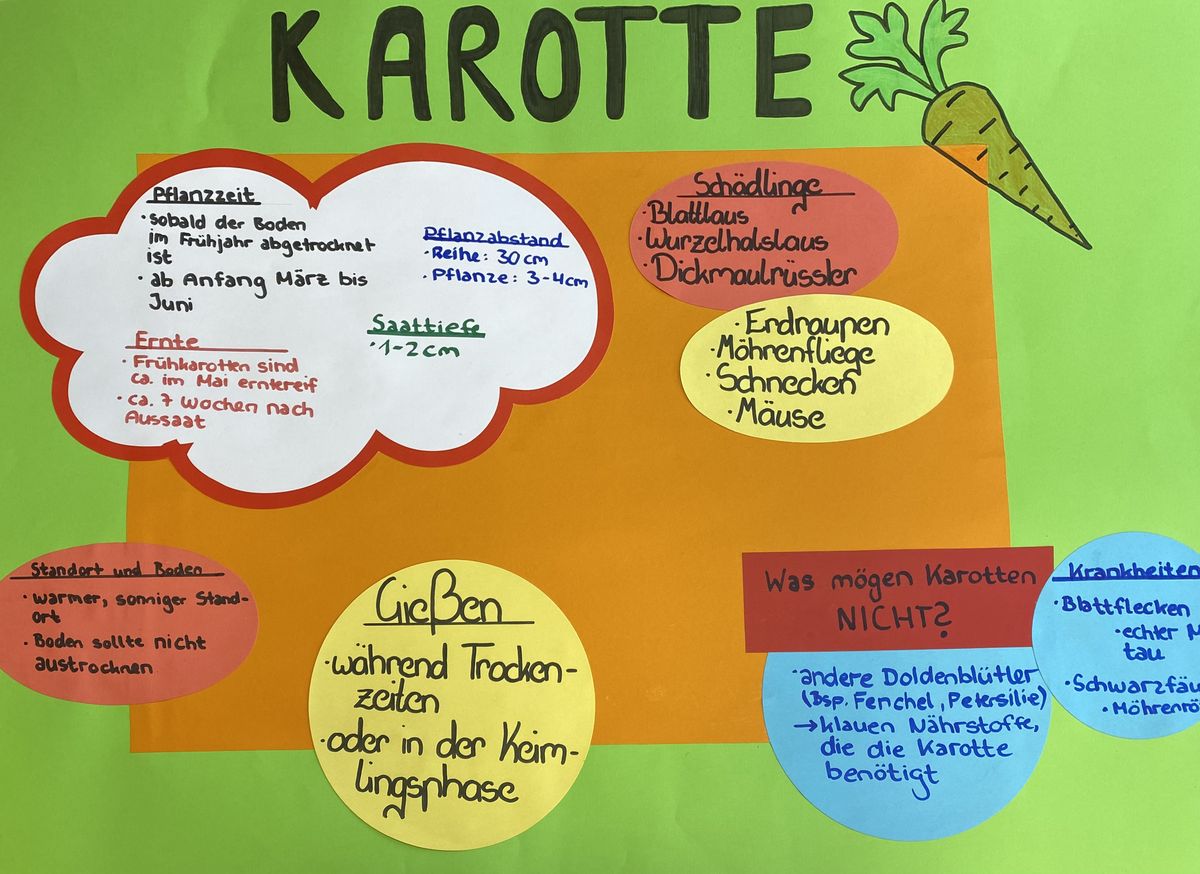 KAROTTE
Pflanzzeit
· sobald der Boden
im Frühjahr abgetrocknet
ist
· ab Anfang März bis
Juni
Pflanzabstand
· Reihe: 30 cm
· Pflanze: 3-4cm
Saattiefe
· 1-2 cm
Ernte
· Frühkarotten sind
ca. im Mai erntereif
· ca. 7 Wochen nach
Aussaat
Schädlinge
· Blattlaus
· Wurzelhalslaus
· Dickmaulrüssler
· Endraupen
· Möhrenfliege
· Schnecken
· Mäuse
Standort und Boden
· warmer, sonniger Stand-
ort
· Boden sollte nicht
austrocknen
Gießen
· während Trocken-
zeiten
· oder in der Keim-
lingsphase
Was mögen Karotten
NICHT?
· andere Doldenblütler
(Bsp. Fenchel, Petersilie)
→ klauen Nährstoffe,
die die Karotte
benötigt
Krankheiten
· Blattflecken
· echter M
tau
· Schwarzfäu
· Möhrenrö